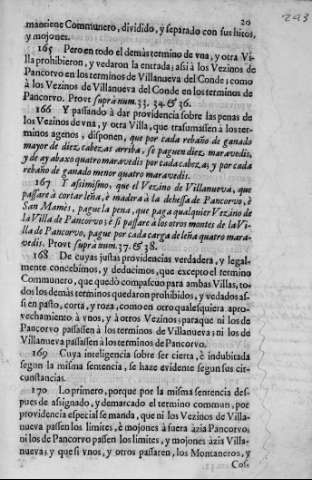 20
243
mantiene Communero, dividido, y separado con sus hitos,
y mojones.
165 Pero en todo el demàs termino de vna, y otra Vi-
lla prohibieron, y vedaron la entrada; assi à los Vezinos de
Pancorvo en los terminos de Villanueva del Conde; como
à los Vezinos de Villanueva del Conde en los terminos de
Pancorvo. Prove suprà num. 33. 34. & 36.
166 Y passando à dàr providencia sobre las penas de
los Vezinos de vna, y otra Villa, que trasumassen à los ter-
minos agenos, disponen, que por cada rebaño de ganado
mayor de diez cabezas arriba, se paguen diez maravedis,
y de ay abaxo quatro maravedis por cada cabeza; y por cada
rebaño de ganado menor quatro maravedis.
167 Y assimismo, que el Vezino de Villanueva, que
passare à cortar leña, è madera à la dehessa de Pancorvo, è
San Mamès, pague la pena, que paga qualquier Vezino de
la Villa de Pancorvo; è si passare à los otros montes de la Vi-
lla de Pancorvo, pague por cada carga de leña quatro mara-
vedis. Prove suprà num. 37. & 38.
168 De cuyas justas providencias verdadera, y legal-
mente concebimos, y deducimos, que excepto el termino
Communero, que quedò compascuo para ambas Villas, to-
dos los demàs terminos quedaron prohibidos, y vedados as-
si en pasto, corta, y roza, como en otro qualesquiera apro-
vechamiento à vnos, y à otros Vezinos; para que ni los de
Pancorvo passassen à los terminos de Villanueva; ni los de
Villanueva passassen à los terminos de Pancorvo.
169 Cuya inteligencia sobre ser cierta, è indubitada
segun la misma sentencia, se haze evidente segun sus cir-
cunstancias.
170 Lo primero, porque por la misma sentencia des-
pues de assignado, y demarcado el termino commun, por
providencia especial se manda, que ni los Vezinos de Villa-
nueva passen los limites, è mojones à fuera àzia Pancorvo;
ni los de Pancorvo passen los limites, y mojones àzia Villa-
nueva; y que si vnos, y otros passaren, los Montaneros, y
Cos-